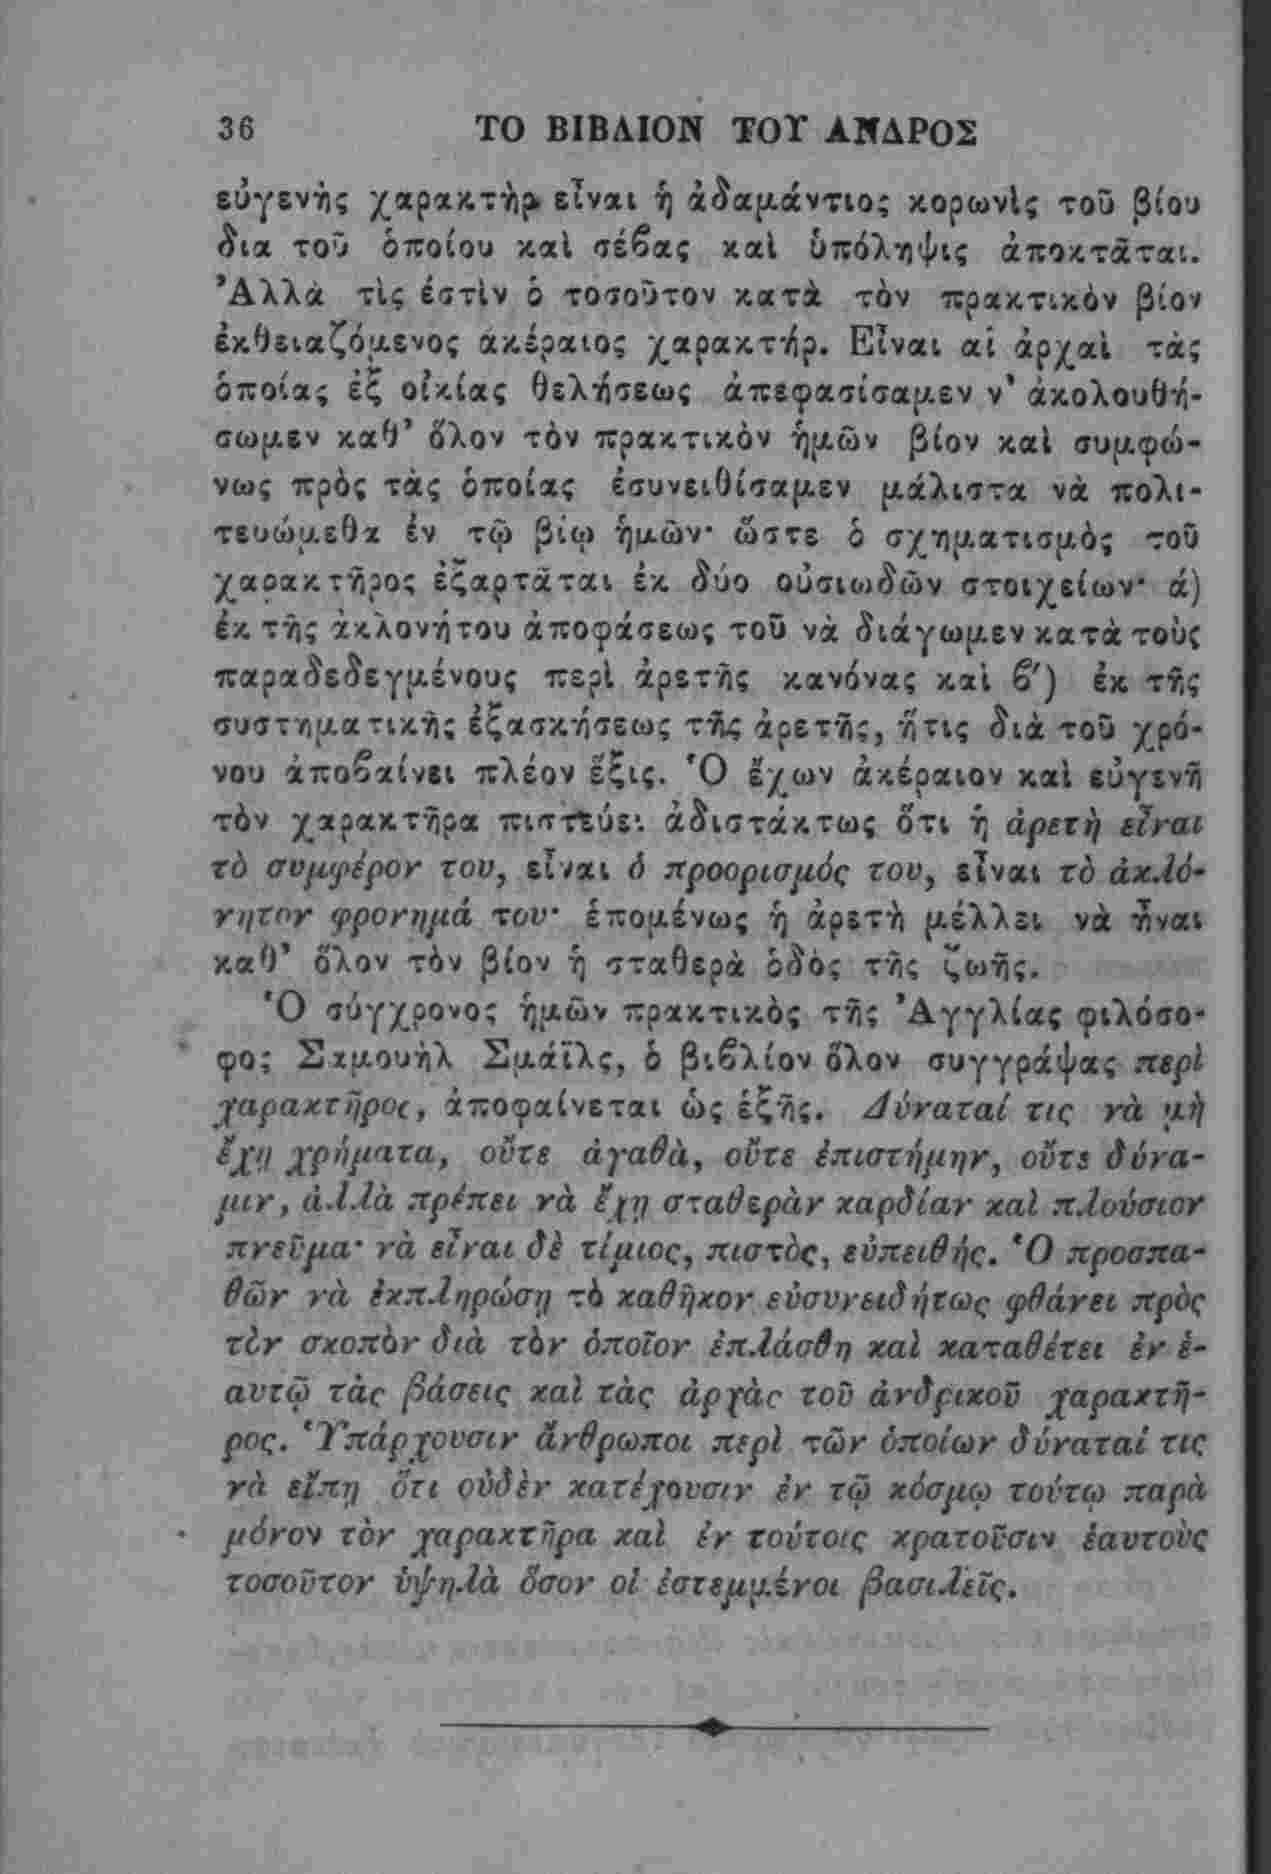 36 ΤΟ ΒΙΒΛΙΟΝ ΤΟΥ ΑΝΔΡΟΣ
εὐγενὴς χαρακτὴρ εἶναι ἡ ἀδαμάντιος κορωνὶς τοῦ βίου
δια τοῦ ὁποίου καὶ σέβας καὶ ὑπόληψις ἀποκτᾶται.
Ἀλλὰ τὶς ἐστὶν ὁ τοσοῦτον κατὰ τὸν πρακτικὸν βίον
ἐκθειαζόμενος ἀκέραιος χαρακτήρ. Εἶναι αἱ ἀρχαὶ τὰς
ὁποίας ἐξ οἰκίας θελήσεως ἀπεφασίσαμεν ν' ἀκολουθή-
σωμεν καθ' ὅλον τὸν πρακτικὸν ἡμῶν βίον καὶ συμφώ-
νως πρὸς τὰς ὁποίας ἐσυνειθίσαμεν μάλιστα νὰ πολι-
τευώμεθα ἐν τῷ βίῳ ἡμῶν· ὥστε ὁ σχηματισμὸς τοῦ
χαρακτῆρος ἐξαρτᾶται ἐκ δύο οὐσιωδῶν στοιχείων· ά)
ἐκ τῆς ἀκλονήτου ἀποφάσεως τοῦ νὰ διάγωμεν κατὰ τοὺς
παραδεδεγμένους περὶ ἀρετῆς κανόνας καὶ β') ἐκ τῆς
συστηματικῆς ἐξασκήσεως τῆς ἀρετῆς, ἥτις διὰ τοῦ χρό-
νου ἀποβαίνει πλέον ἕξις. Ὁ ἔχων ἀκέραιον καὶ εὐγενῆ
τὸν χαρακτῆρα πιστεύει ἀδιστάκτως ὅτι ἡ ἀρετὴ εἶναι
τὸ συμφέρον του, εἶναι ὁ προορισμός του, εἶναι τὸ ἀκλό-
νητον φρονημά του· ἑπομένως ἡ ἀρετὴ μέλλει νὰ ἦναι
καθ' ὅλον τὸν βίον ἡ σταθερὰ ὁδὸς τῆς ζωῆς.
Ὁ σύγχρονος ἡμῶν πρακτικὸς τῆς Ἀγγλίας φιλόσο-
φος Σαμουὴλ Σμάϊλς, ὁ βιβλίον ὅλον συγγράψας περὶ
χαρακτῆρος, ἀποφαίνεται ὡς ἑξῆς. Δύναταί τις νὰ μὴ
ἔχῃ χρήματα, οὔτε ἀγαθὰ, οὔτε ἐπιστήμην, οὔτε δύνα-
μιν, ἀλλὰ πρέπει νὰ ἔχῃ σταθερὰν καρδίαν καὶ πλούσιον
πνεῦμα· νὰ εἶναι δὲ τίμιος, πιστὸς, εὐπειθής. Ὁ προσπα-
θῶν νὰ ἐκπληρώσῃ τὸ καθῆκον εὐσυνειδήτως φθάνει πρὸς
τὸν σκοπὸν διὰ τὸν ὁποῖον ἐπλάσθη καὶ καταθέτει ἐν ἑ-
αυτῷ τὰς βάσεις καὶ τὰς ἀρχὰς τοῦ ἀνδρικοῦ χαρακτῆ-
ρος. Ὑπάρχουσιν ἄνθρωποι περὶ τῶν ὁποίων δύναταί τις
νὰ εἴπῃ ὅτι οὐδὲν κατέχουσιν ἐν τῷ κόσμῳ τούτῳ παρὰ
μόνον τὸν χαρακτῆρα καὶ ἐν τούτοις κρατοῦσιν ἑαυτοὺς
τοσοῦτον ὑψηλὰ ὅσον οἱ ἐστεμμένοι βασιλεῖς.